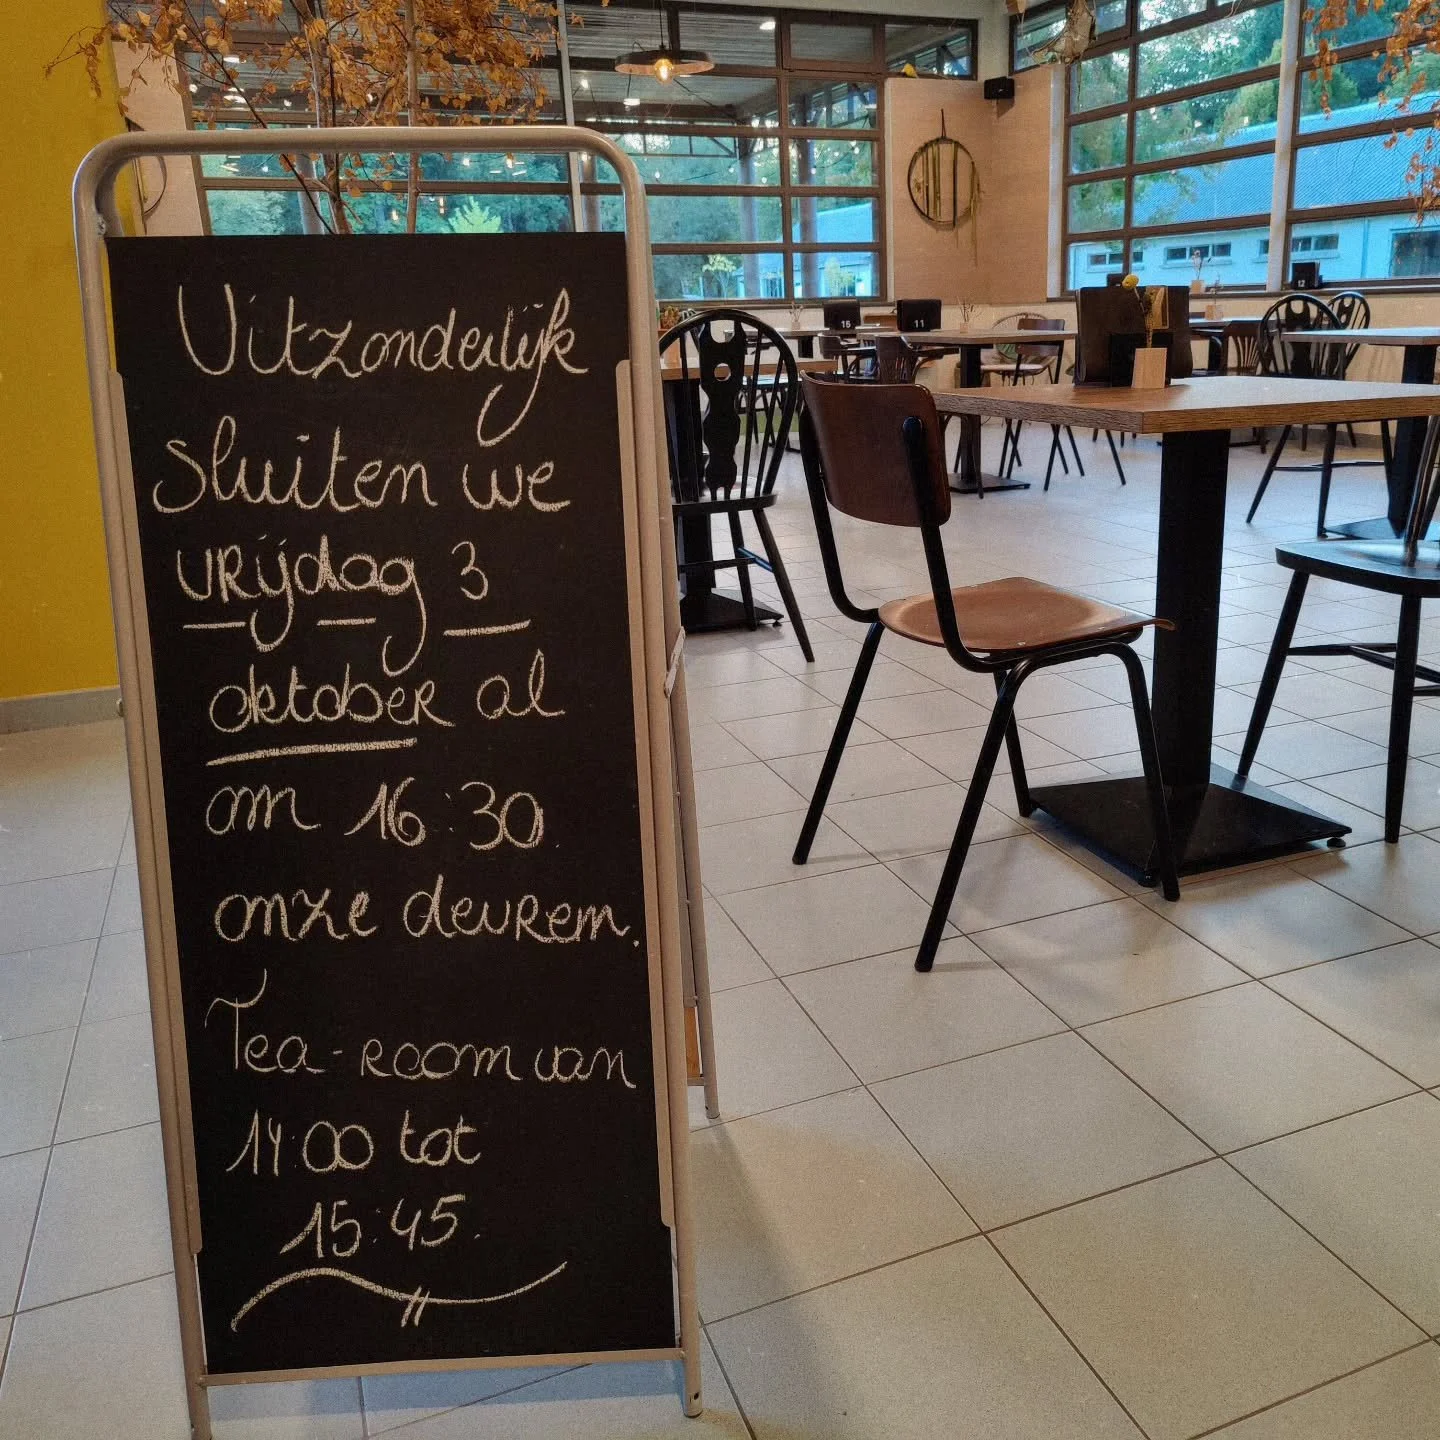 Uitzonderlijk
sluiten we
vrijdag 3
oktober al
om 16:30
onze deuren.
Tea-room van
14:00 tot
15:45.
16
11
12